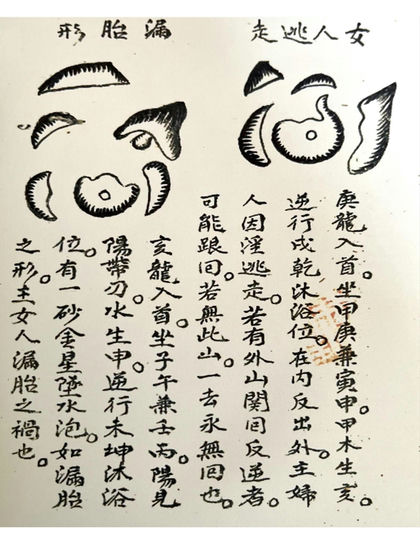 女人逃走
漏胎形
庚龍入首。坐甲庚兼寅申。甲木生亥。
逆行戌乾沐浴位。在內反出外。主婦
人因淫逃走。若有外山關回反逆者。
可能跟回。若無此山。一去永無回也。
亥龍入首。坐子午兼壬丙。陽見
陽帶刃。水生申。逆行未坤沐浴
位。有一砂金星墜水泡。如漏胎
之形。主女人漏胎之禍也。